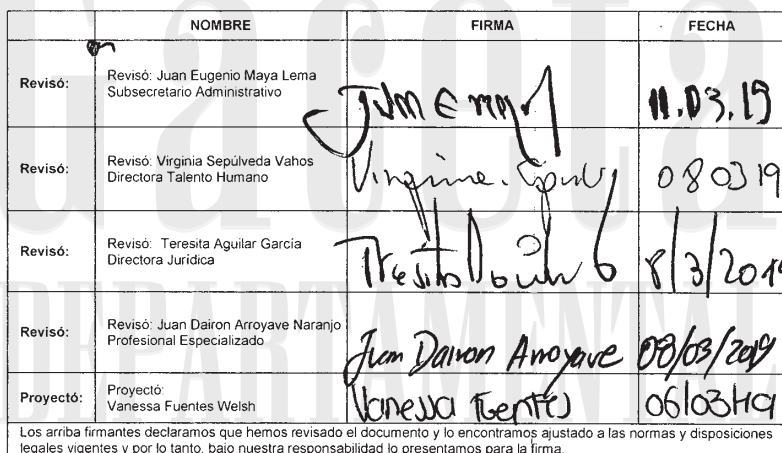 NOMBRE FIRMA FECHA
Revisó: Revisó: Juan Eugenio Maya Lema
Subsecretario Administrativo
11.03.19
Revisó: Revisó: Virginia Sepúlveda Vahos
Directora Talento Humano
Virginia 080319
Revisó: Revisó: Teresita Aguilar García
Directora Jurídica
8/3/2019
Revisó: Revisó: Juan Dairon Arroyave Naranjo
Profesional Especializado
Juan Dairon Arroyave 08/03/2019
Proyectó: Proyectó:
Vanessa Fuentes Welsh
Vanessa Fuentes 06/03/19
Los arriba firmantes declaramos que hemos revisado el documento y lo encontramos ajustado a las normas y disposiciones
legales vigentes y por lo tanto, bajo nuestra responsabilidad lo presentamos para la firma.
Gaceta
DEPARTAMENTAL